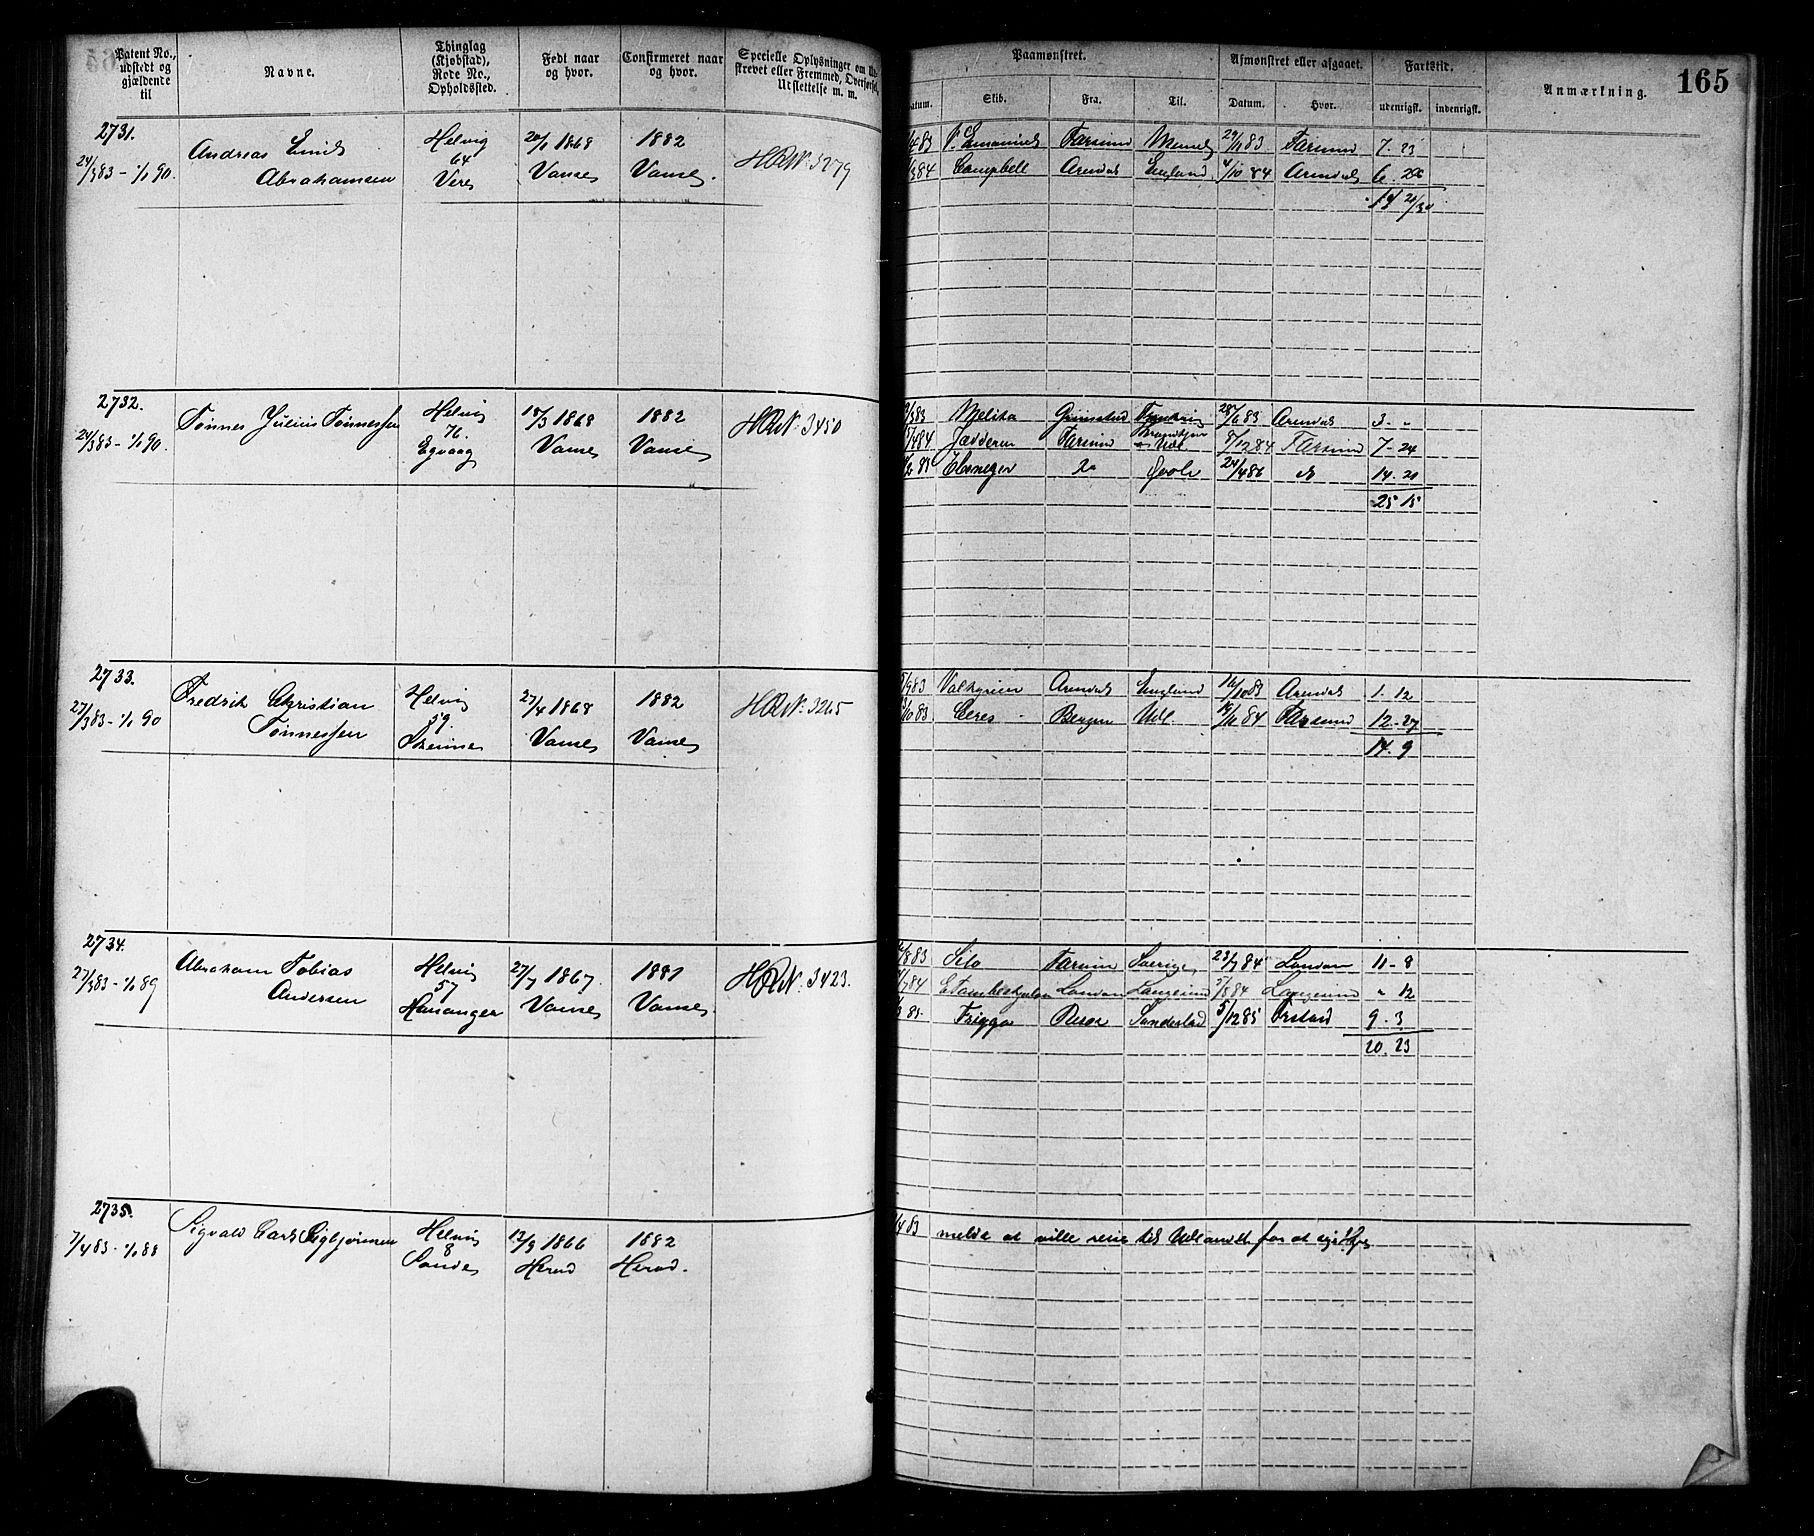 Patent No., udstedt og gjældende til
Navne.
Thinglag (Kjøbstad), Rode No., Opholdssted.
Født naar og hvor.
Confirmeret naar og hvor.
Specielle Oplysninger om
strevet eller Fremmed, Overførsel,
Udslettelse m. m.
Paamønstret.
Afmønstret eller afgaaet.
Fartstid.
Anmærkning.
165
Datum.
Skib.
Fra.
Til.
Datum.
Hvor.
udenrigsk.
indenrigsk.
2731.
24/383 - 1/1 90.
Andreas Emil
Abrahamsen
Helvig
64
Veres
20/1 1868
Vanse
1882
Vanse.
HR No. 3279
Farsund
29/1183
Farsund
7. 23
84 Campbell
Arendal
England
4/10 84
Arendal
2732.
24/383 - 1/1 90.
Tønnes Julius Tønnessen
Helvig
76.
Egvaag
18/3 1868
Vanse
1882
Vanse
HR No. 3450
Melita
Grimstad
28/683
Arendal
3 - "
Jædderen
Farsund
8/1284
Farsund
7 - 24
Ebenezer
Do
24/486
do
14. 21
25 15
2733.
27/383 - 1/1 90
Fredrik Christian
Tønnessen
Helvig
59.
27/4 1868
Vanse
1882
Vanse
HR No. 3265
83 Valkyrien
Arendal
England
16/1083
Arendal
1. 12
83 Ceres
Bergen
Udl.
84
Farsund
12 - 27
14. 9
2734.
27/383 - 1/1 89
Abraham Tobias
Andersen
Helvig
57
Hananger
27/7 1867
Vanse
1881
Vanse.
HR No. 3423.
83 Silo
Farsund
Sverige
23/784
London
11 - 8
84
London
Langesund
84 Langesund
" 12
85. Frigga
Risør
Sunderland
5/1285
9. 3
20. 23
2735.
7/483 - 1/1 88
Sigvald Carl Sigbjørnsen
Helvig
8
Sande
12/9 1866
Herad
1882
Herad.
83 melde at ville reise til Udlandet for at